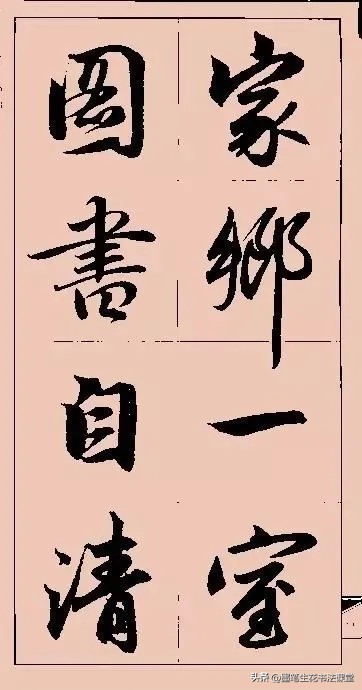 家鄉一室
圖書自清
头条@墨笔生花书法课堂